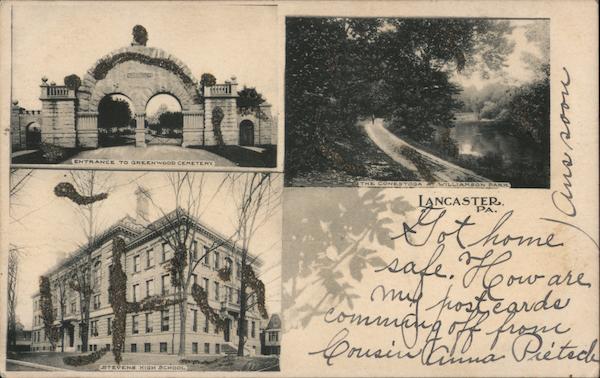 ENTRANCE TO GREENWOOD CEMETERY
THE CONESTOGA AT WILLIAMSON PARK
STEVENS HIGH SCHOOL
LANCASTER,
PA.
Got home
safe. How are
my postcards
comming off from
Cousin Anna Pietsch
(Ans soon)